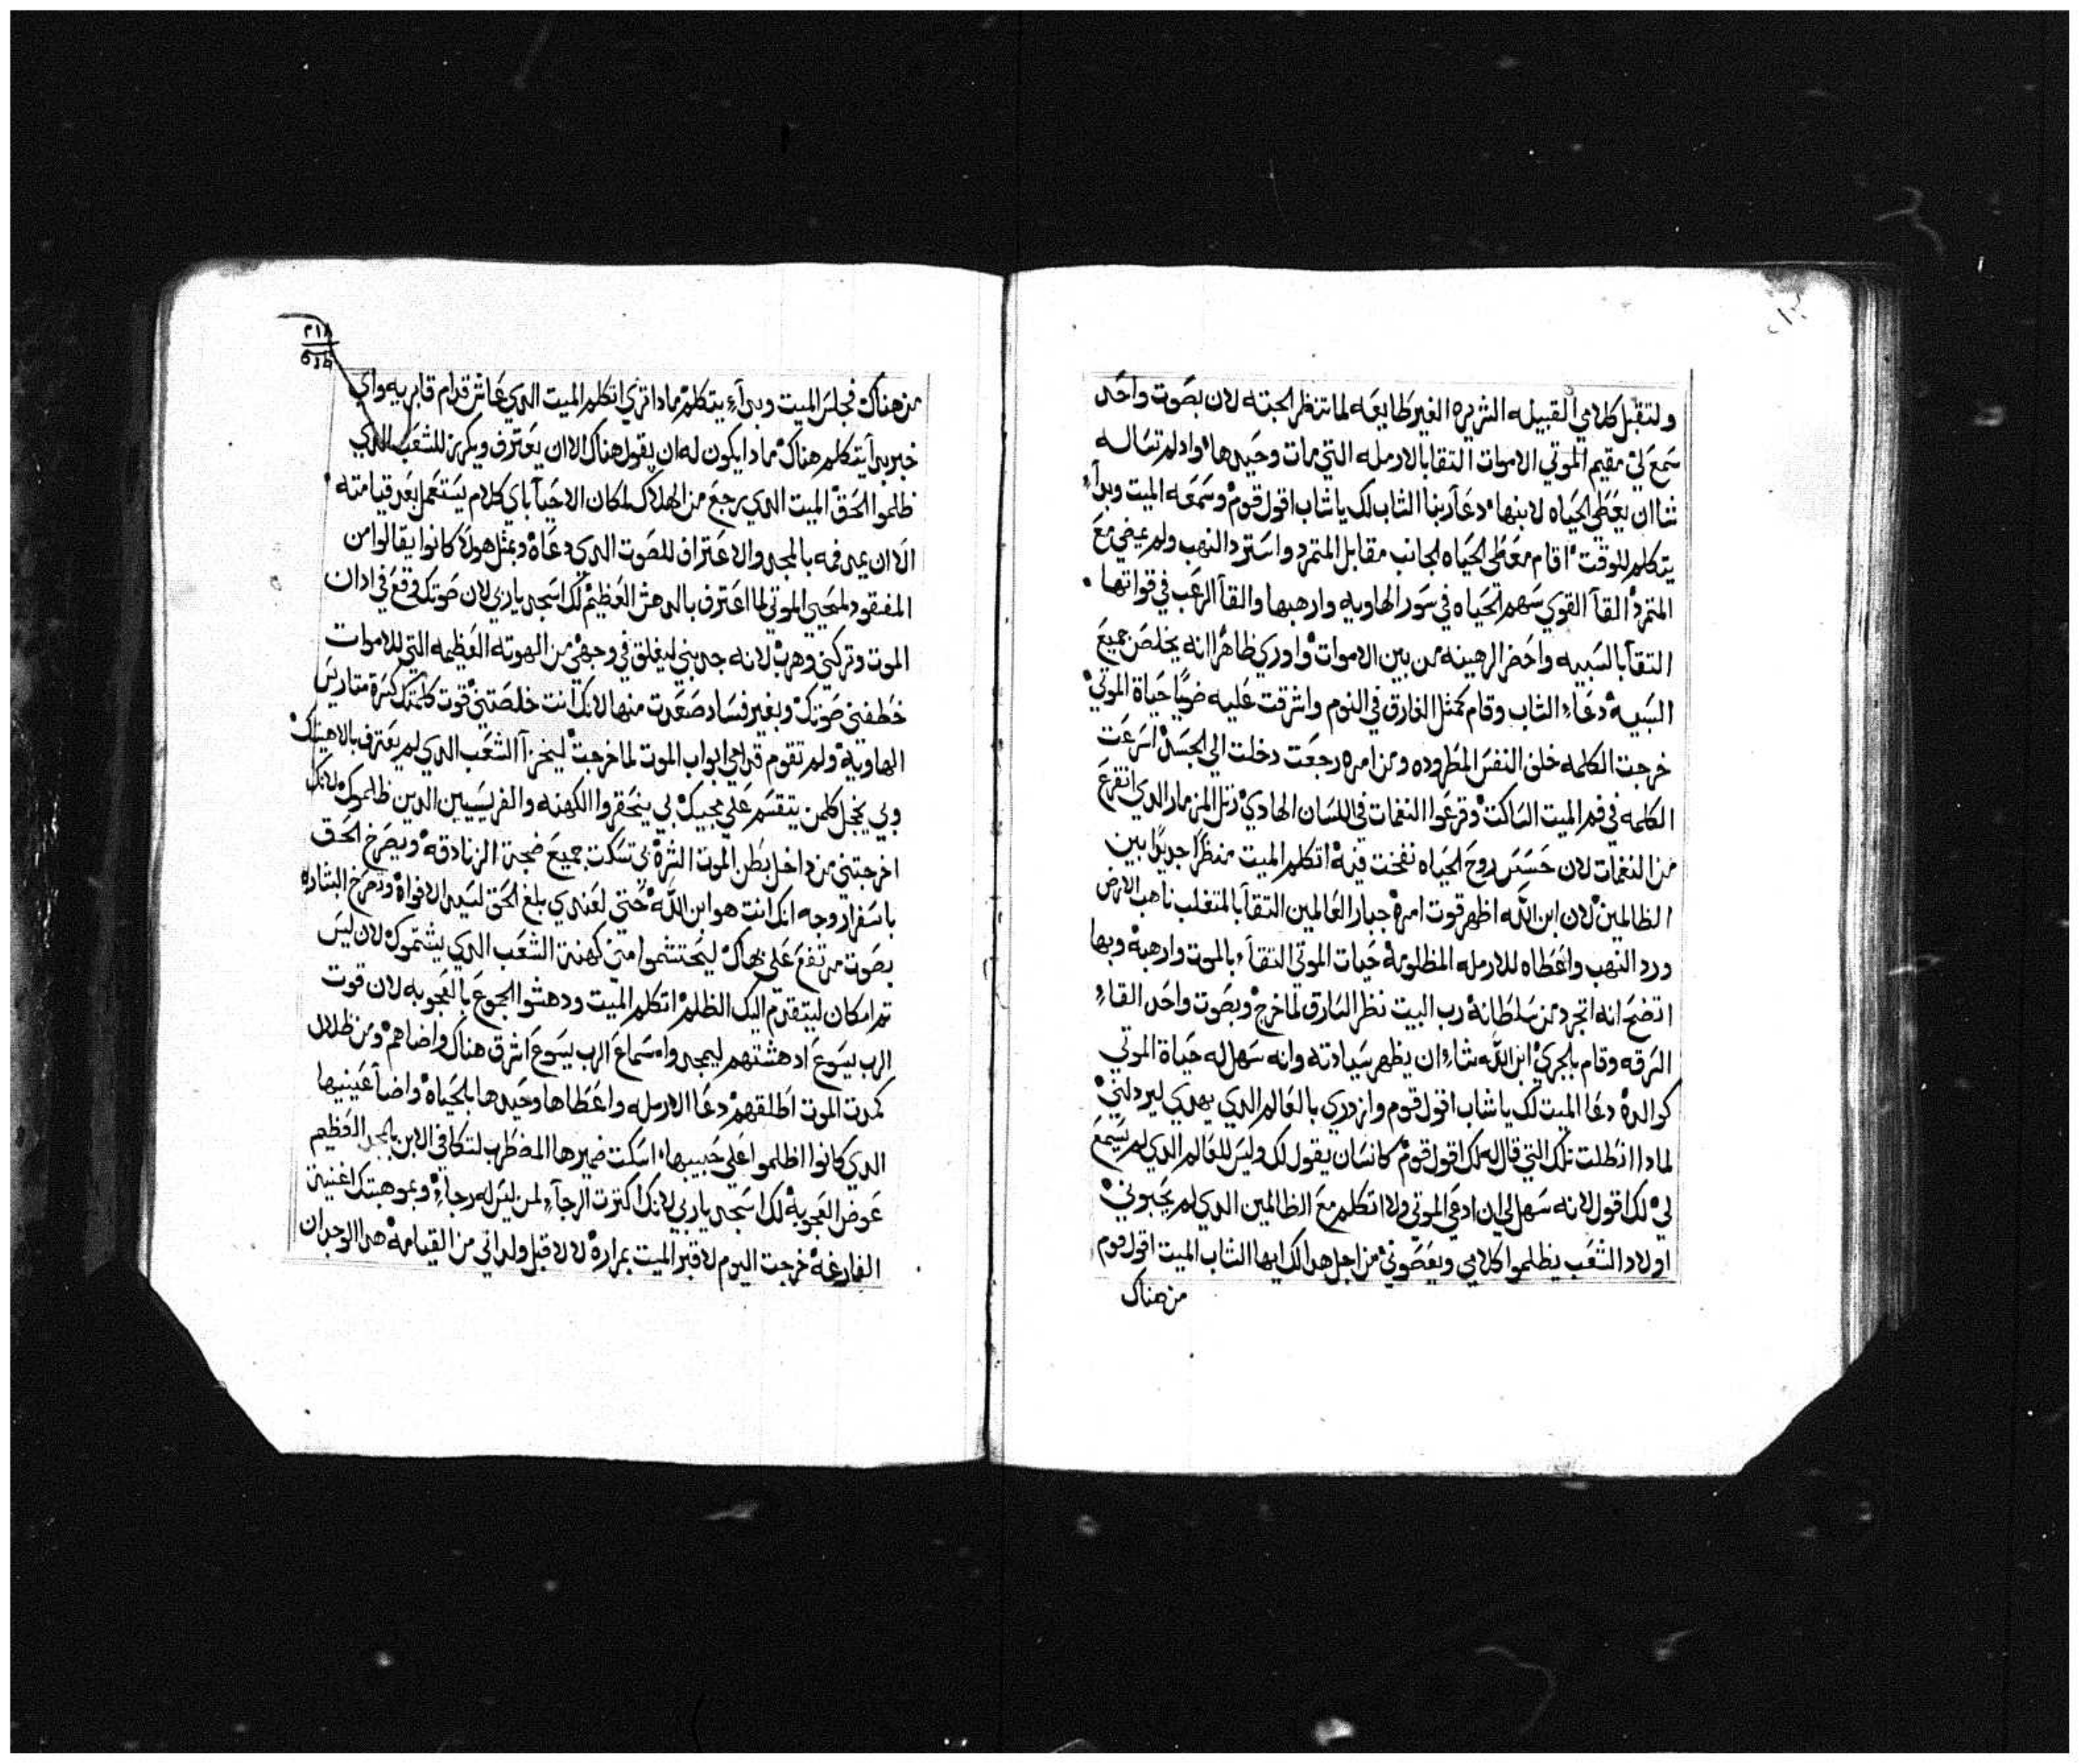 ولتقبل كلامي القبيله الشريره الغير طايعه لما تنظر لجبته لان بصوت واحد
سمع لي مقيم الموتي الاموات التقا بالارمله التي مات وحيدها واد لم تساله
شا ان يعطي الحياه لابنها دعا ربنا الشاب لك ياشاب اقول قوم وسمعه الميت وبدآء
يتكلم للوقت اقام معطي الحياه لجانب مقابل المتمرد واسترد النهب ولم يمضي مع
المتمرد القآ القوي سهم الحياه في سور الهاويه وارهبها والقآ الرعب في قواتها
التقآ بالسبيه واحضر الرهينه من بين الاموات واوري ظاهرا انه يخلص جميع
السبيه دعآء الشاب وقام كمثل الغارق في النوم واشرقت عليه ضيا حياة الموتي
خرجت الكلمه خلف النفس المطروده ومن امره رجعت دخلت الي الجسد اسرعت
الكلمه في فم الميت الساكت وقرعوا النغمات في اللسان الهادي رتل المزمار الدي انقرع
من النغمات لان حسيس روح الحياه نفخت فيه اتكلم الميت منظرا جديدا بين
الظالمين لان ابن الله اظهر قوت امره جبار العالمين التقآ بالمتغلب ناهب الارض
ورد النهب واعطاه للارمله المظلومه حيات الموتي التقآء بالموت وارهبه وبها
اتضح انه اتجرد من سلطانه رب البيت نظر السارق لما خرج وبصوت واحد القآء
السرقه وقام بالجري ابن الله شاء ان يظهر سيادته وانه سهل له حياة الموتي
كوالده دعا الميت لك ياشاب اقول قوم وازدري بالعالم الدي يهدي ليرد لني
لمادا انطلت تلك التي قال لك اقول قوم كانسان يقول لك وليس للعالم الدي لم يسمع
لي لك اقول لانه سهل لي ان ادعي الموتي ولا اتكلم مع الظالمين الدي لم يجيبوني
اولاد الشعب يظلموا كلامي ويعصوني من اجل هدا لك ايها الشاب الميت اقول قوم
من هناك
٢١٨
من هناك فجلس الميت وبدآء يتكلم مادا تري اتكلم الميت الدي عاش قدام قابريه واي
خبر بدآ يتكلم هناك مادا يكون له ان يقول هناك الا ان يعترف ويكرز للشعب الدي
ظلموا الحق الميت الدي يرجع من الهلاك لمكان الاحيآ باي كلام يستعمل بعد قيامته
الا ان يمد فمه بالمجد والاعتراف للصوت الدي دعاه وبمثل هولا كانوا يقالوا من
المفقود لمحيي الموتي لما اعترف بالدهش العظيم لك اسجد ياربي لان صوتك وقع في ادان
الموت وتركني وهرب لانه جدبني ليغلق في وجهي من الهوته العظيمه التي للاموات
خطفني صوتك وبغير فساد صعدت منها لانك انت خلصتني قوت كلمتك كسرة متاريس
الهاوية ولم تقوم قدامي ابواب الموت لما خرجت ليخزآ الشعب الدي لم يعترف بالاهيتك
وبي يخجل كلمن يتقسم علي مجيك بي ينحقروا الكهنه والفريسيين الدين ظالموك لانك
اخرجتني من داخل بطن الموت الشره بي تسكت جميع ضجة الزنادقه ويصرخ الحق
باسفار وجه انك انت هو ابن الله حتي لعندي بلغ الحق لتسد الافواه وتصرخ البشاره
بصوت مرتفع علي بهاك ليحتشموا مني كهنة الشعب الدي يشتموك لان ليس
تم امكان ليتقدم اليك الظلم اتكلم الميت ودهشوا الجموع بالعجوبه لان قوت
الرب يسوع ادهشتهم ليمجدوا سماع الرب يسوع اشرق هناك واضاهم ومن ظلال
كمدت الموت اطلقهم دعا الارمله واعطاها وحيدها بالحياه واضآ عينيها
الدي كانوا اظلموا علي حبيبها اسكت ضميرها المضطرب لتكافي الابن بالمجد العظيم
عوض العجوبه لك اسجد ياربي لانك اكترت الرجآء لمن ليس له رجآء وبموهبتك اغنيتة
الفارغه خرجت اليوم لاقبر الميت بمراره لا لاقبل ولداني من القيامه هدا الوجدان